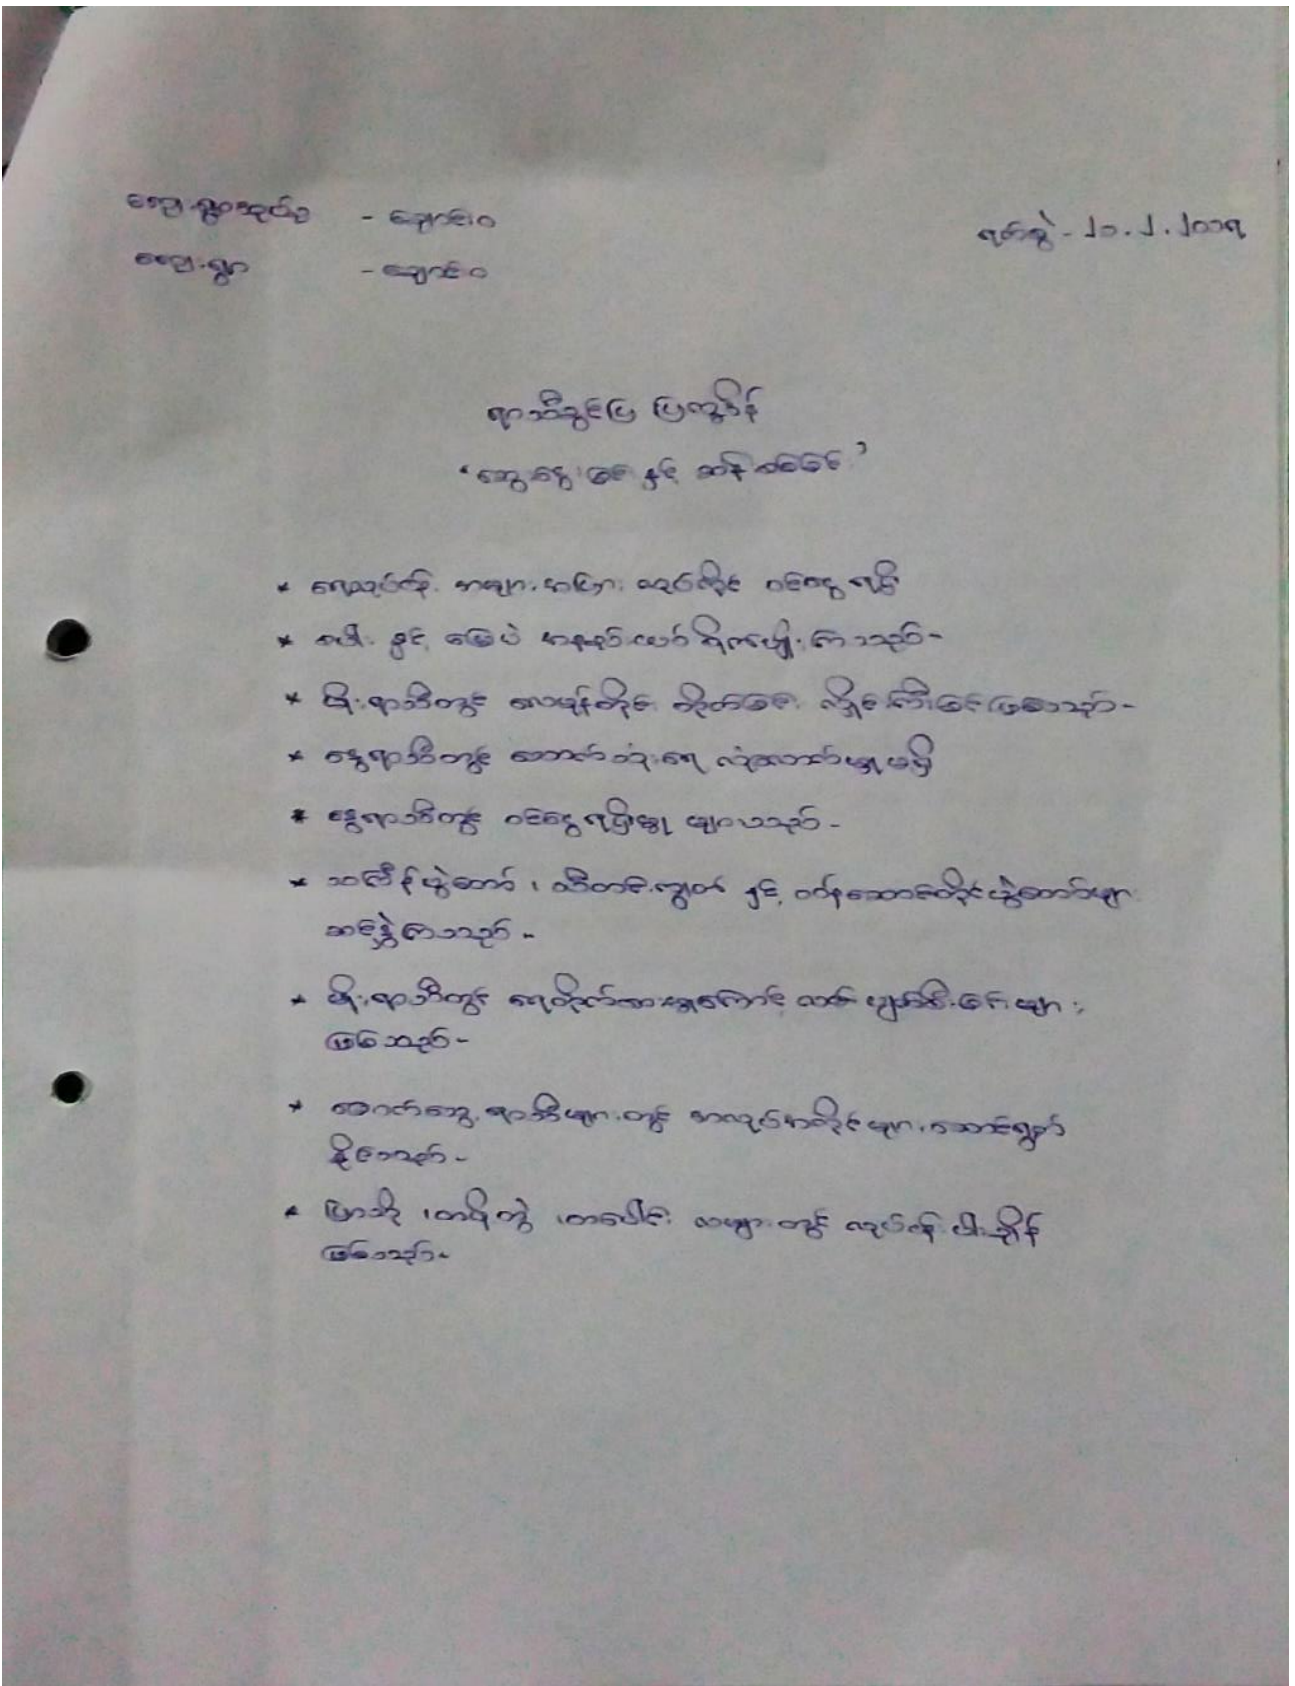 ကျေးရွာအုပ်စု - ချောင်းဝ
ရက်စွဲ - ၂၁.၂.၂၀၁၇
ကျေးရွာ - ချောင်းဝ
ရာသီခွင်ပြ ပြက္ခဒိန်
“ဆွေးနွေးခြင်းနှင့် ဆန်းစစ်ခြင်း”
* ရေလုပ်ငန်း အများအပြား လုပ်ကိုင် ဝင်ငွေရရှိ
* စပါးနှင့် မြေပဲ အနည်းငယ် စိုက်ပျိုးကြသည်-
* မိုးရာသီတွင် လေမုန်တိုင်း တိုက်ခြင်း၊ လှိုင်းကြီးခြင်းဖြစ်သည်-
* နွေရာသီတွင် သောက်သုံးရေ လုံလောက်မှုမရှိ
* နွေရာသီတွင် ဝင်ငွေရရှိမှု များသည်-
* သင်္ကြန်ပွဲတော်၊ သီတင်းကျွတ် နှင့် တန်ဆောင်တိုင်ပွဲတော်များ
ဆင်နွှဲကြသည်-
* မိုးရာသီတွင် ရေတိုက်စားမှုကြောင့် လမ်းပျက်စီးခြင်းများ
ဖြစ်သည်-
* ခြောက်သွေ့ရာသီများတွင် အလုပ်အကိုင်များ ဆောင်ရွက်
နိုင်သည်-
* ပြာသို၊ တပို့တွဲ၊ တပေါင်း လများတွင် လုပ်ငန်းပါးချိန်
ဖြစ်သည်-